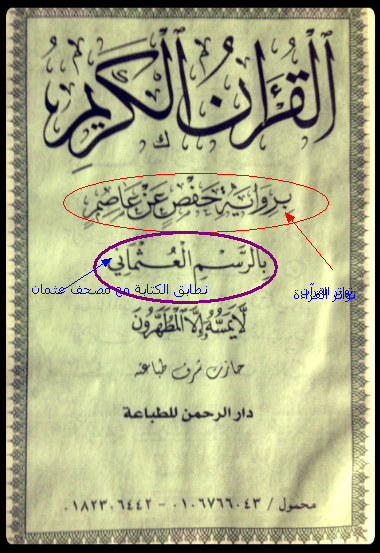 القرآن الكريم
برواية حفص عن عاصم
بالرسم العثماني
تطابق الكتابة مع مصحف عثمان
تواتر القراءة
لا يمسه إلا المطهرون
حازت شرف طباعته
دار الرحمن للطباعة
محمول / ٠١٠٦٧٦٦٠٤٣ - ٠١٨٢٣٠٦٤٤٢